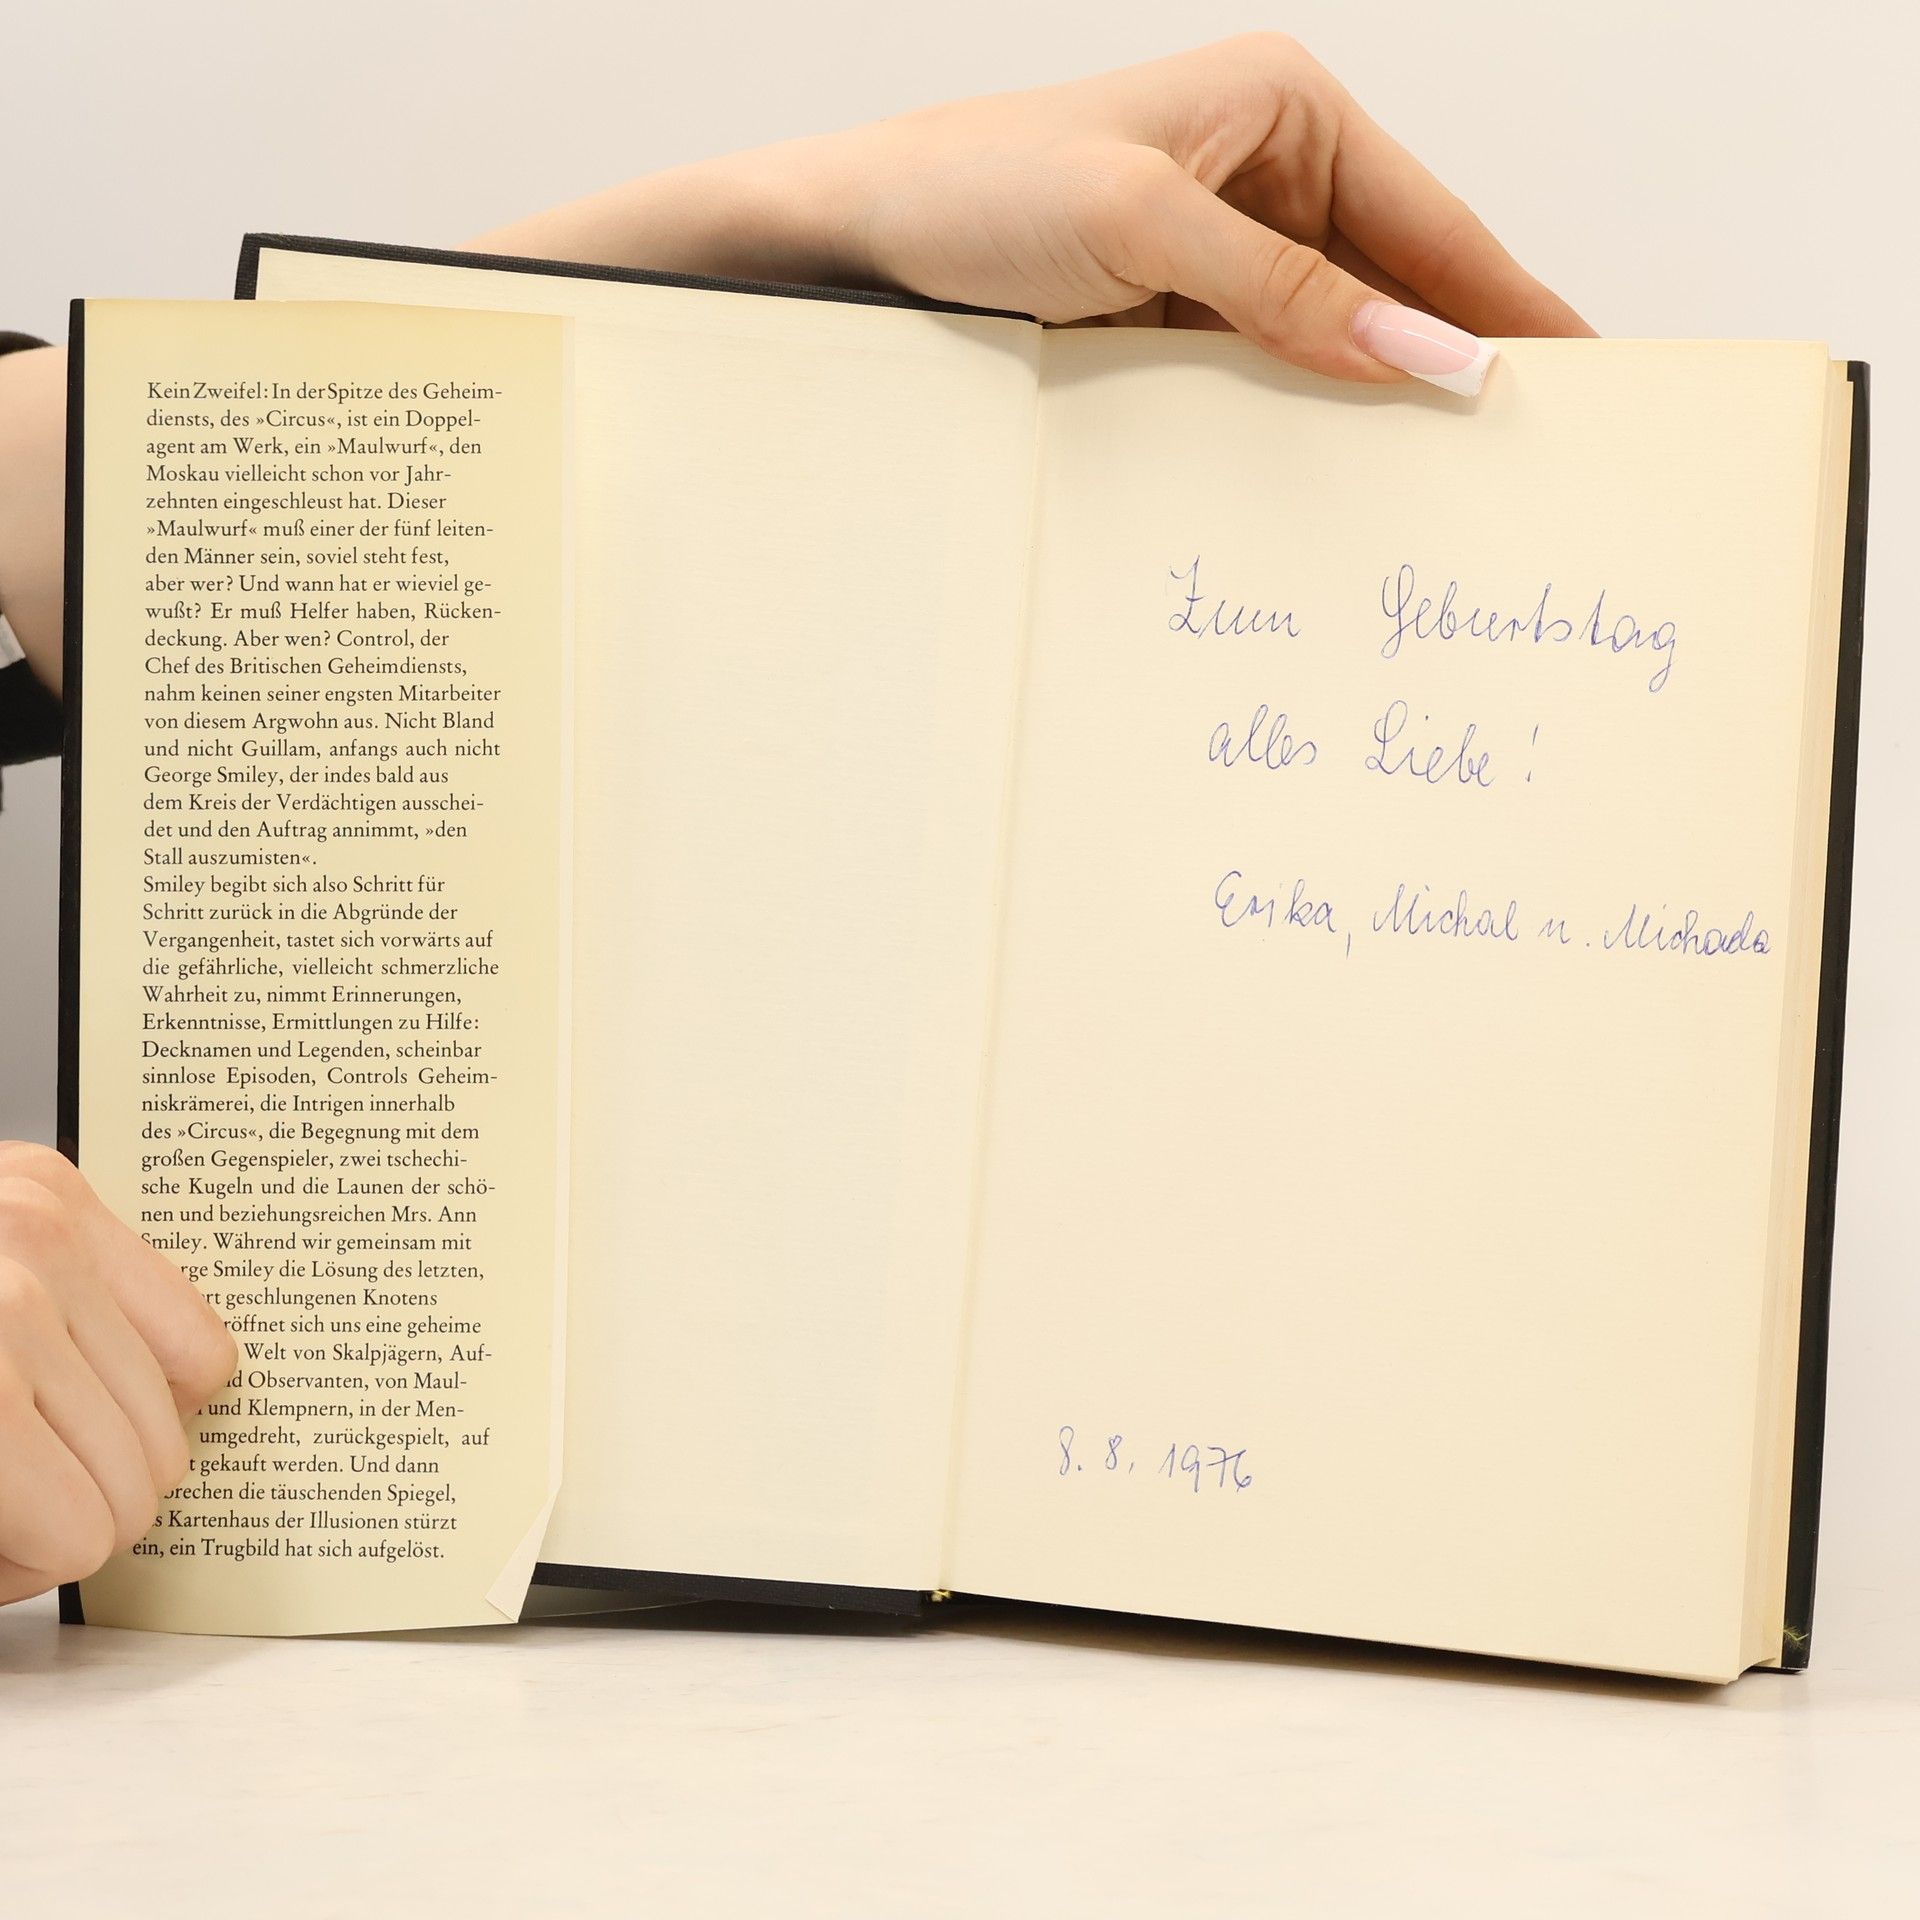 Kein Zweifel: In der Spitze des Geheim-
diensts, des »Circus«, ist ein Doppel-
agent am Werk, ein »Maulwurf«, den
Moskau vielleicht schon vor Jahr-
zehnten eingeschleust hat. Dieser
»Maulwurf« muß einer der fünf leiten-
den Männer sein, soviel steht fest,
aber wer? Und wann hat er wieviel ge-
wußt? Er muß Helfer haben, Rücken-
deckung. Aber wen? Control, der
Chef des Britischen Geheimdiensts,
nahm keinen seiner engsten Mitarbeiter
von diesem Argwohn aus. Nicht Bland
und nicht Guillam, anfangs auch nicht
George Smiley, der indes bald aus
dem Kreis der Verdächtigen ausschei-
det und den Auftrag annimmt, »den
Stall auszumisten«.
Smiley begibt sich also Schritt für
Schritt zurück in die Abgründe der
Vergangenheit, tastet sich vorwärts auf
die gefährliche, vielleicht schmerzliche
Wahrheit zu, nimmt Erinnerungen,
Erkenntnisse, Ermittlungen zu Hilfe:
Decknamen und Legenden, scheinbar
sinnlose Episoden, Controls Geheim-
niskrämerei, die Intrigen innerhalb
des »Circus«, die Begegnung mit dem
großen Gegenspieler, zwei tschechi-
sche Kugeln und die Launen der schö-
nen und beziehungsreichen Mrs. Ann
Smiley. Während wir gemeinsam mit
Smiley die Lösung des letzten,
geschlungenen Knotens
sich uns eine geheime
Welt von Skalpjägern, Auf-
Observanten, von Maul-
und Klempnern, in der Men-
umgedreht, zurückgespielt, auf
gekauft werden. Und dann
die täuschenden Spiegel,
Kartenhaus der Illusionen stürzt
ein, ein Trugbild hat sich aufgelöst.
Zum Geburtstag
alles Liebe!
Erika, Michal u.
8. 8. 1976